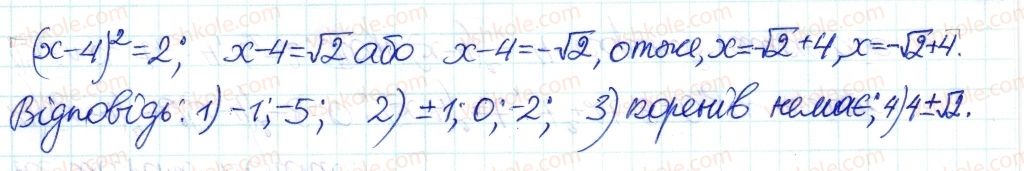 (x-4)²=2; x-4=√2 або x-4=-√2, отже, x=√2+4, x=-√2+4.
Відповідь: 1) -1; -5; 2) ±1; 0; -2; 3) коренів немає; 4) 4±√2.